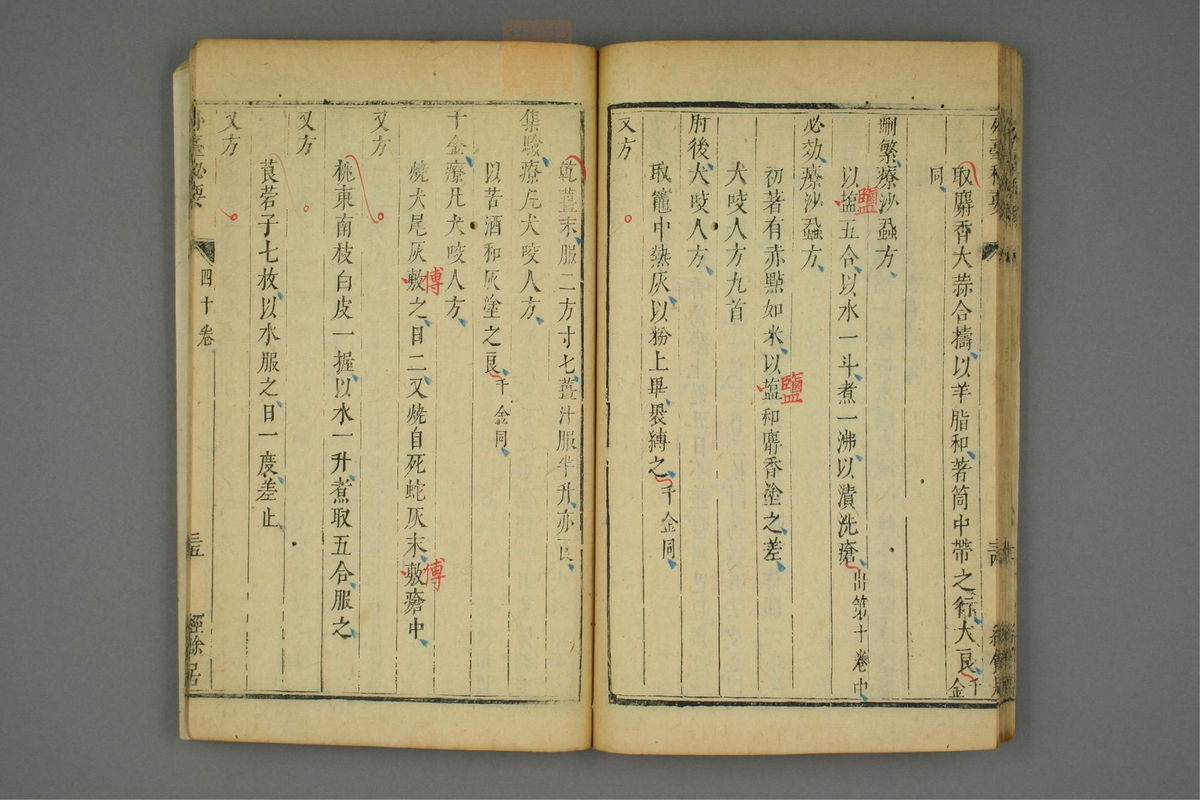 取麝香大蒜合擣以羊脂和著筒中帶之行大良千金
同
刪繁療沙蝨方
以塩五合以水一斗煮一沸以漬洗瘡出第十卷中
鹽
必効療沙蝨方
初著有赤點如米以塩和麝香塗之差
鹽
犬咬人方九首
肘後犬咬人方
取竈中熱灰以粉上畢裹縛之千金同
又方
乾薑末服二方寸匕薑汁服半升亦良
集驗療凡犬咬人方
以苦酒和灰塗之良千金同
千金療凡犬咬人方
燒犬尾灰敷之日二又燒自死蛇灰末敷瘡中
傅
傅
又方
桃東南枝白皮一握以水一升煮取五合服之
又方
莨菪子七枚以水服之日一度差止
又方
外臺秘要
四十卷
三五
經餘居